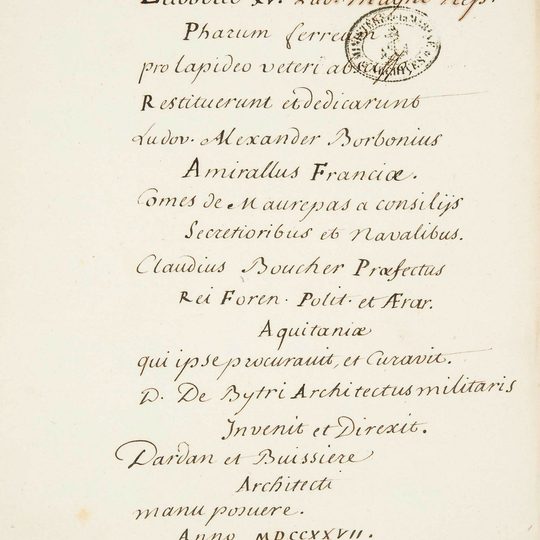 Pharum ferream
pro lapideo veteri
Restituerunt et dedicarunt
Ludov. Alexander Borbonius
Amirallus Franciæ.
Comes de Maurepas a consilijs
Secretioribus et Navalibus.
Claudius Boucher Præfectus
Rei Foren. Polit. et Ærar.
Aquitaniæ
qui ipse procurauit, et Curavit.
D. De Bytri Architectus militaris
Invenit et Direxit.
Dardan et Buissiere
Architecti
manu posuere.
Anno MDCCXXVII.